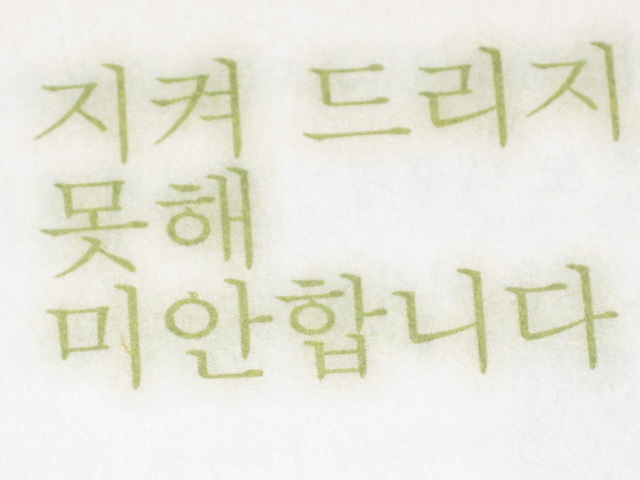 지켜 드리지
못해
미안합니다